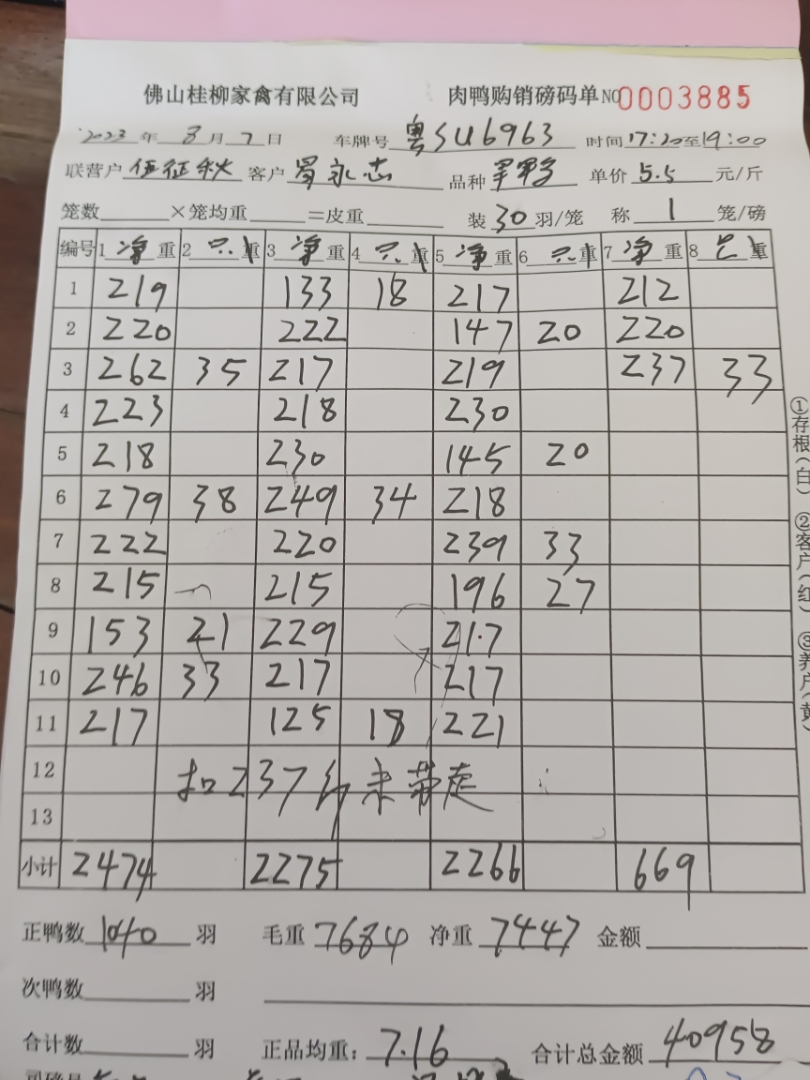 佛山桂柳家禽有限公司 肉鸭购销磅码单 NO 0003885
2023 年 8 月 7 日 车牌号 粤SU6963 时间 17:20 至 19:00
联营户 伍征秋 客户 罗永志 品种 单价 5.5 元/斤
笼数 ×笼均重 =皮重 装 30 羽/笼 称 1 笼/磅
编号 1 净 重 2 只 重 3 净 重 4 只 重 5 净 重 6 只 重 7 净 重 8 只 重
1 219 133 18 217 212
2 220 222 147 20 220
3 262 35 217 219 237 33
4 223 218 230
5 218 230 145 20
6 279 38 249 34 218
7 222 220 239 33
8 215 215 196 27
9 153 21 229 21.7
10 246 33 217 217
11 217 125 18 221
12 扣237 未带走
13
小计 2474 2275 2266 669
正鸭数 1040 羽 毛重 7684 净重 7447 金额
次鸭数 羽
合计数 羽 正品均重: 7.16 合计总金额 40958
①存根(白) ②客户(红) ③养户(黄)